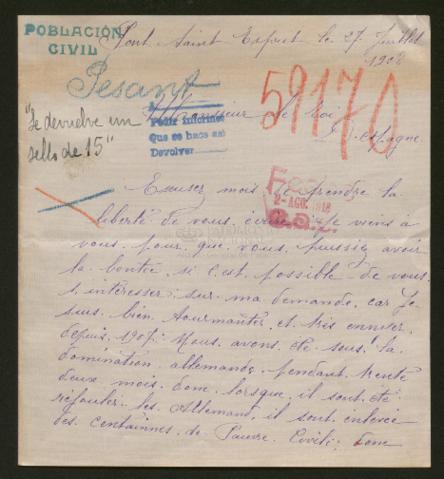 POBLACIÓN
CIVIL
Pont Saint Esprit le 27 Juillet
1918
Pesant
59170
Monsieur le Roi
d'espagne
Pedir informes
Que se haga así
Devolver
"Se devuelve un
sello de 15"
2- AGO. 1918
Excusez mois de prendre la
liberté de vous écrire je viens à
vous pour que vous puissiez avoir
la bontée si c'est possible de vous
s'intéresser sur ma demande, car Je
suis bien tourmanter et très ennuyer
depuis 1917. Nous avons été sous la
domination allemande pendant trente
deux mois donc lorsque il sont été
refouler les Allemand, il sont enlevée
des Centainnes de Pauvre Civil; donc